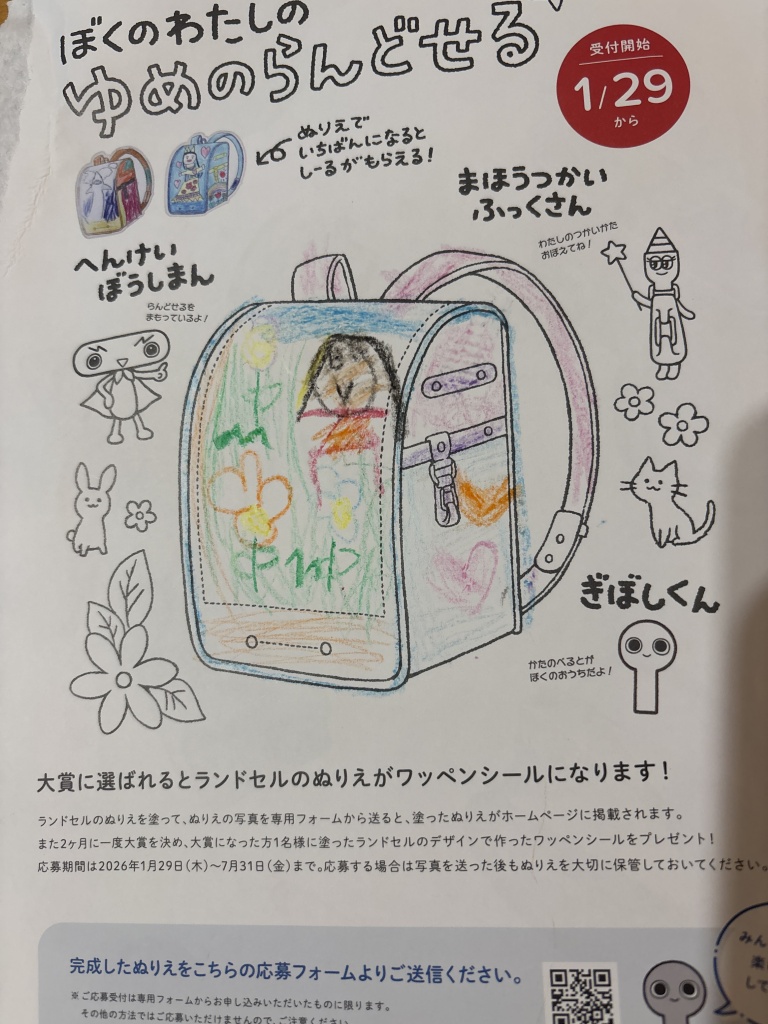 ぼくのわたしの
ゆめのらんどせる
受付開始
1/29
から
ぬりえで
いちばんになると
しーるがもらえる!
まほうつかい
ふっくさん
わたしのつかいかた
おぼえてね!
へんけい
ぼうしまん
らんどせるを
まもっているよ!
ぎぼしくん
かたのべるとが
ぼくのおうちだよ!
大賞に選ばれるとランドセルのぬりえがワッペンシールになります!
ランドセルのぬりえを塗って、ぬりえの写真を専用フォームから送ると、塗ったぬりえがホームページに掲載されます。
また2ヶ月に一度大賞を決め、大賞になった方1名様に塗ったランドセルのデザインで作ったワッペンシールをプレゼント!
応募期間は2026年1月29日(木)〜7月31日(金)まで。応募する場合は写真を送った後もぬりえを大切に保管しておいてください。
完成したぬりえをこちらの応募フォームよりご送信ください。
※ご応募受付は専用フォームからお申し込みいただいたものに限ります。
その他の方法ではご応募いただけませんので、ご注意ください。
みん
楽
して